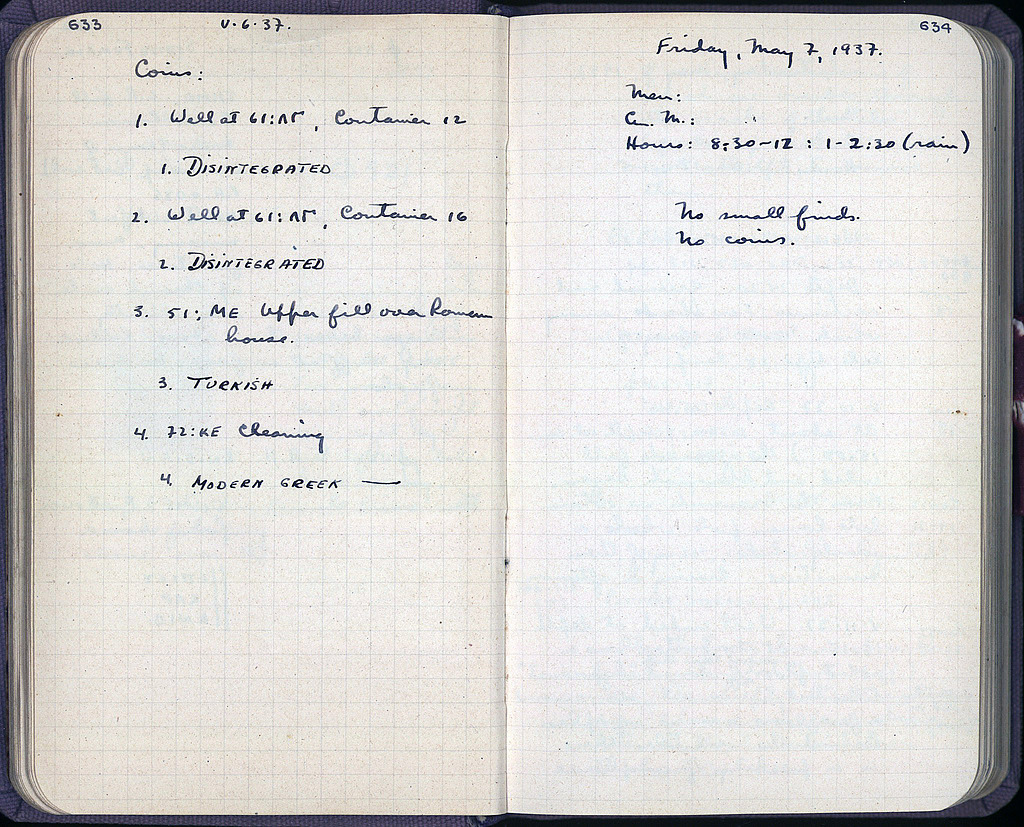 633
V·6·37.
Coins:
1. Well at 61:ΛΓ, Container 12
1. DISINTEGRATED
2. Well at 61:ΛΓ, Container 16
2. DISINTEGRATED
3. 51:ME Upper fill over Roman
house.
3. TURKISH
4. 72:KE Cleaning
4. MODERN GREEK —
634
Friday, May 7, 1937.
Men:
M.:
Hours: 8:30-12 : 1-2:30 (rain)
No small finds.
No coins.